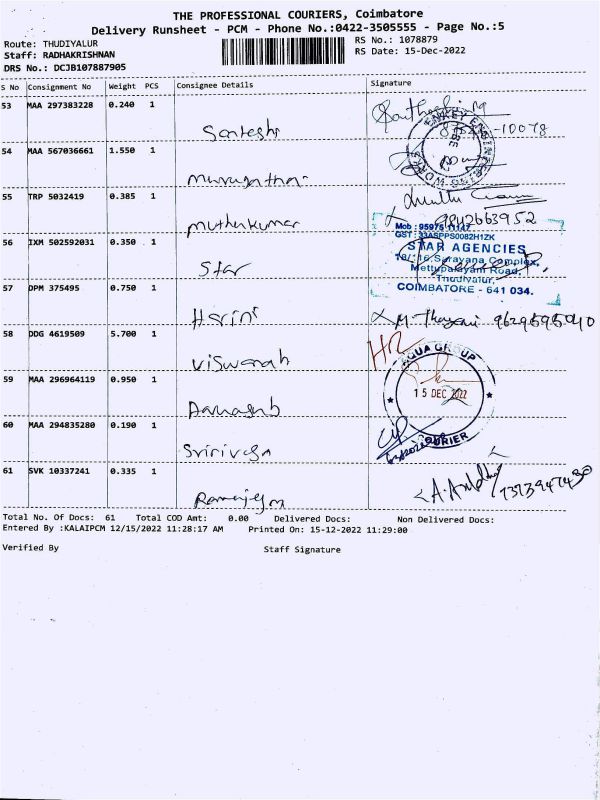 THE PROFESSIONAL COURIERS, Coimbatore
Delivery Runsheet - PCM - Phone No.:0422-3505555 - Page No.:5
Route: THUDIYALUR
RS No.: 1078879
Staff: RADHAKRISHNAN
RS Date: 15-Dec-2022
DRS No.: DCJB107887905
S No Consignment No Weight PCS Consignee Details Signature
53 MAA 297383228 0.240 1
Santosh
-10078
54 MAA 567036661 1.550 1
55 TRP 5032419 0.385 1
Muthukumar
9842663952
Mob : 95975 11147
GST : 33ASPPS0082H1ZK
STAR AGENCIES
56 IXM 502592031 0.350 1
Star
Mettupalayam Road,
Thudiyalur,
COIMBATORE - 641 034.
57 DPM 375495 0.750 1
Harini
M. 9629595040
58 DDG 4619509 5.700 1
Viswanath
HR
AQUA GROUP
15 DEC 2022
59 MAA 296964119 0.950 1
60 MAA 294835280 0.190 1
COURIER
61 SVK 10337241 0.335 1
Total No. Of Docs: 61 Total COD Amt: 0.00 Delivered Docs: Non Delivered Docs:
Entered By :KALAIPCM 12/15/2022 11:28:17 AM Printed On: 15-12-2022 11:29:00
Verified By Staff Signature